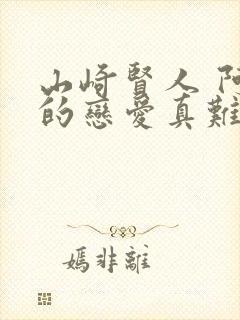 山崎賢人 阿
的戀愛真難
媽非離